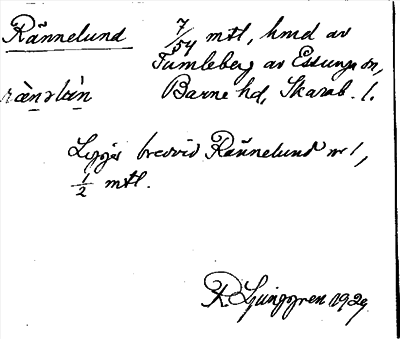 Rännelund 7/54 mtl, hmd av
Tumleberg av Essunga sn,
rànnlùn Barne hd, Skarab. l.
Ligger bredvid Rännelund nr 1,
1/2 mtl.
R Ljunggren 1929